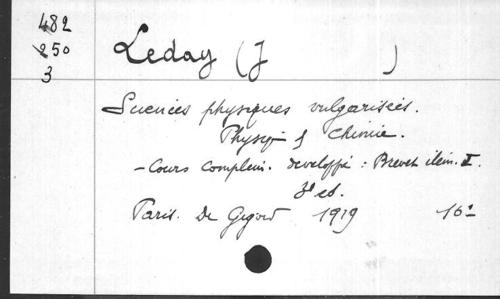 482
250
3
Leday (J )
Sciences physiques vulgarisées.
Physiq & Chimie.
- Cours complém. développé : Brevet élém. I.
3e ed.
Paris. De Gigord 1919 16º